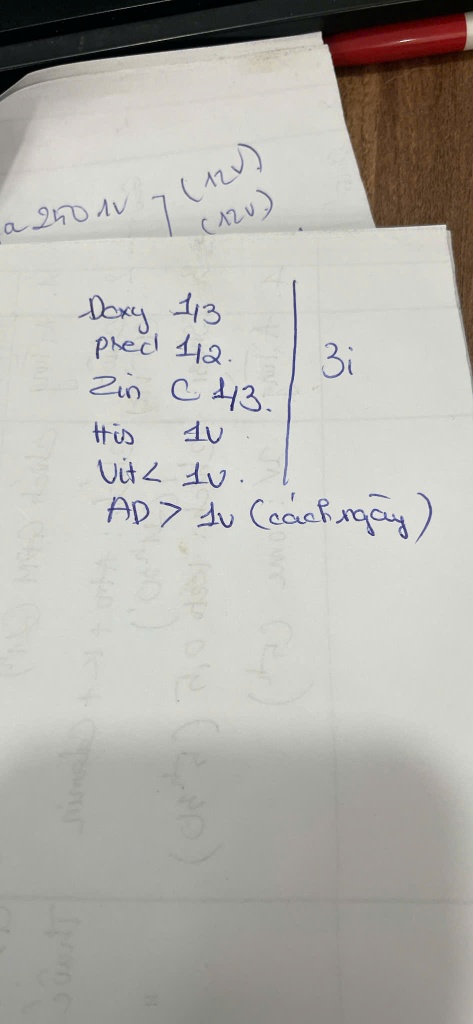 a 250 1v (12v)
(12v)
Doxy 1/3
pred 1/2.
Zin C 1/3.
His 1v
Vit < 1v.
AD > 1v (cách ngày)
3i